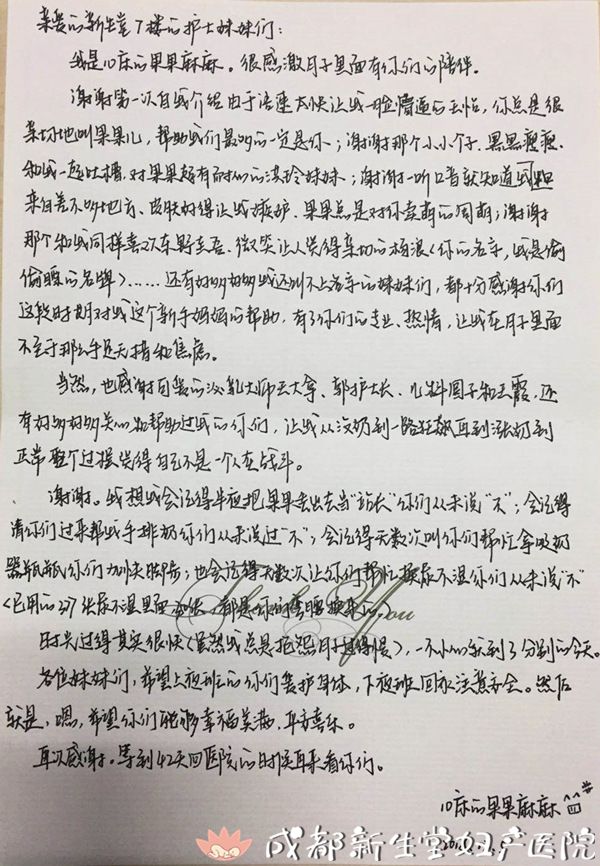 亲爱的新生堂7楼的护士妹妹们:
我是10床的果果麻麻。很感激月子里面有你们的陪伴。
谢谢第一次自我介绍由于语速太快让我一脸懵逼的王怡,你总是很
亲切地叫果果儿,帮助我们最多的一定是你;谢谢那个小小个子、黑黑瘦瘦、
和我一起吐槽,对果果超有耐心的洪玲妹妹;谢谢一听口音就知道跟
来自差不多地方、皮肤好得让我嫉妒、果果总是对你卖萌的周萌;谢谢
那个和我同样喜欢东野圭吾、微笑让人觉得亲切的杨浪(你的名字,我是偷
偷瞟的名牌)……还有好多好多我还叫不上名字的妹妹们,都十分感谢你们
这段时期对我这个新手妈妈的帮助,有了你们的专业、热情,让我在月子里面
不至于那么手足无措和焦虑。
当然,也感谢可爱的泌乳大师王大拿、郭护士长、儿科圆子和王霞,还
有好多好多关心和帮助过我的你们,让我从没奶到一路狂飙再到涨奶到
正常整个过程觉得自己不是一个人在战斗。
谢谢。我想我会记得半夜把果果丢出去当"站长"你们从未说"不";会记得
请你们过来帮我手排奶你们从未说过"不";会记得无数次叫你们帮忙拿吸奶
器瓶瓶你们加快脚步;也会记得无数次让你们帮忙换尿不湿你们从未说"不"
(已用的237张尿不湿里面 都是你们弯腰换来的)
时光过得其实很快(虽然我总是抱怨月子过得慢),一不小心就到了分别的今天。
各位妹妹们,希望上夜班的你们爱护身体,下夜班回家注意安全。然后
就是,嗯,希望你们能够幸福美满、平安喜乐。
再次感谢。等到42天回医院的时候再来看你们。
10床的果果麻麻
成都新生堂妇产医院